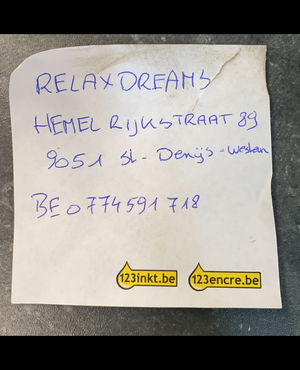 RELAXDREAMS
HEMELRIJKSTRAAT 89
9051 St-Denijs-Westrem
BE0774591718
123inkt.be 123encre.be